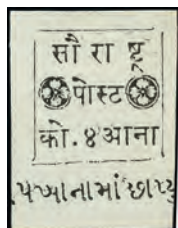 सौ रा ष्ट्र
पोस्ट
को. ४ आना
.પઆનામાં છાપ્યુ